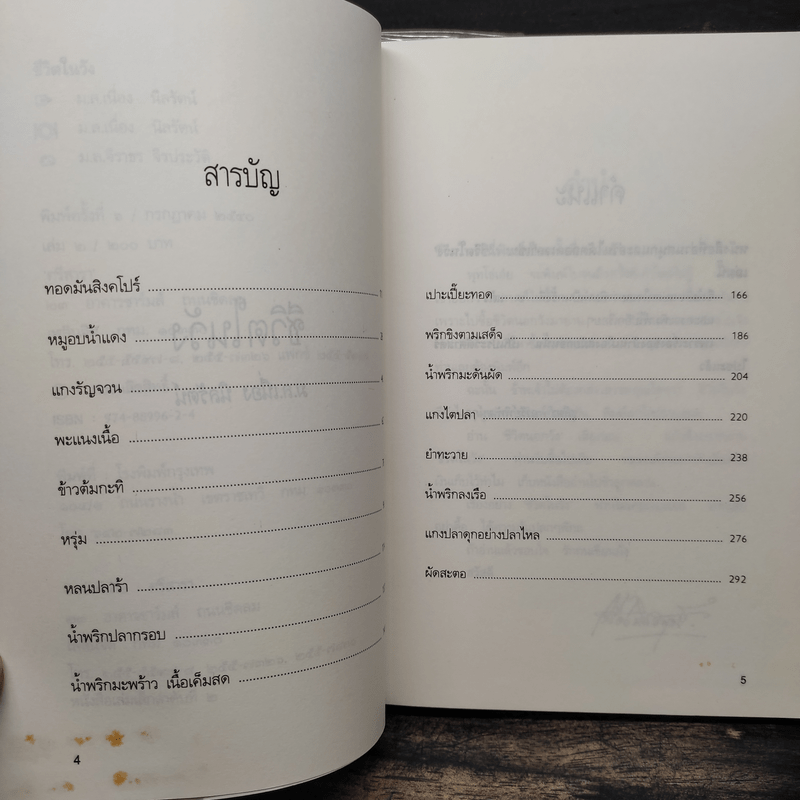 สารบัญ
ทอดมันสิงคโปร์
หมูอบน้ำแดง
แกงรัญจวน
พะแนงเนื้อ
ข้าวต้มกะทิ
หรุ่ม
หลนปลาร้า
น้ำพริกปลากรอบ
น้ำพริกมะพร้าว เนื้อเค็มสด
4
เปาะเปี๊ยะทอด 166
พริกขิงตามเสด็จ 186
น้ำพริกมะดันผัด 204
แกงไตปลา 220
ยำทะวาย 238
น้ำพริกลงเรือ 256
แกงปลาดุกอย่างปลาไหล 276
ผัดสะตอ 292
5